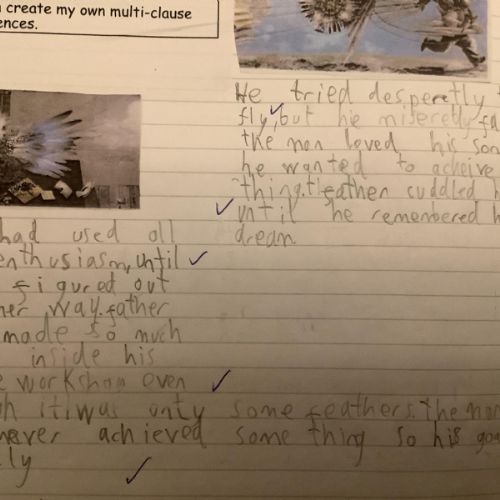 create my own multi-clause
ences.
He tried desperetly
fly, but he miseretly fa
the man loved his son
he wanted to acheive
thing. father cuddled
until he remembered h
dream.
had used all
enthusiasm, until
figured out
her way. father
made so much
inside his
workshop even
it was only some feathers. the man
never achieved some thing so his goa
ly